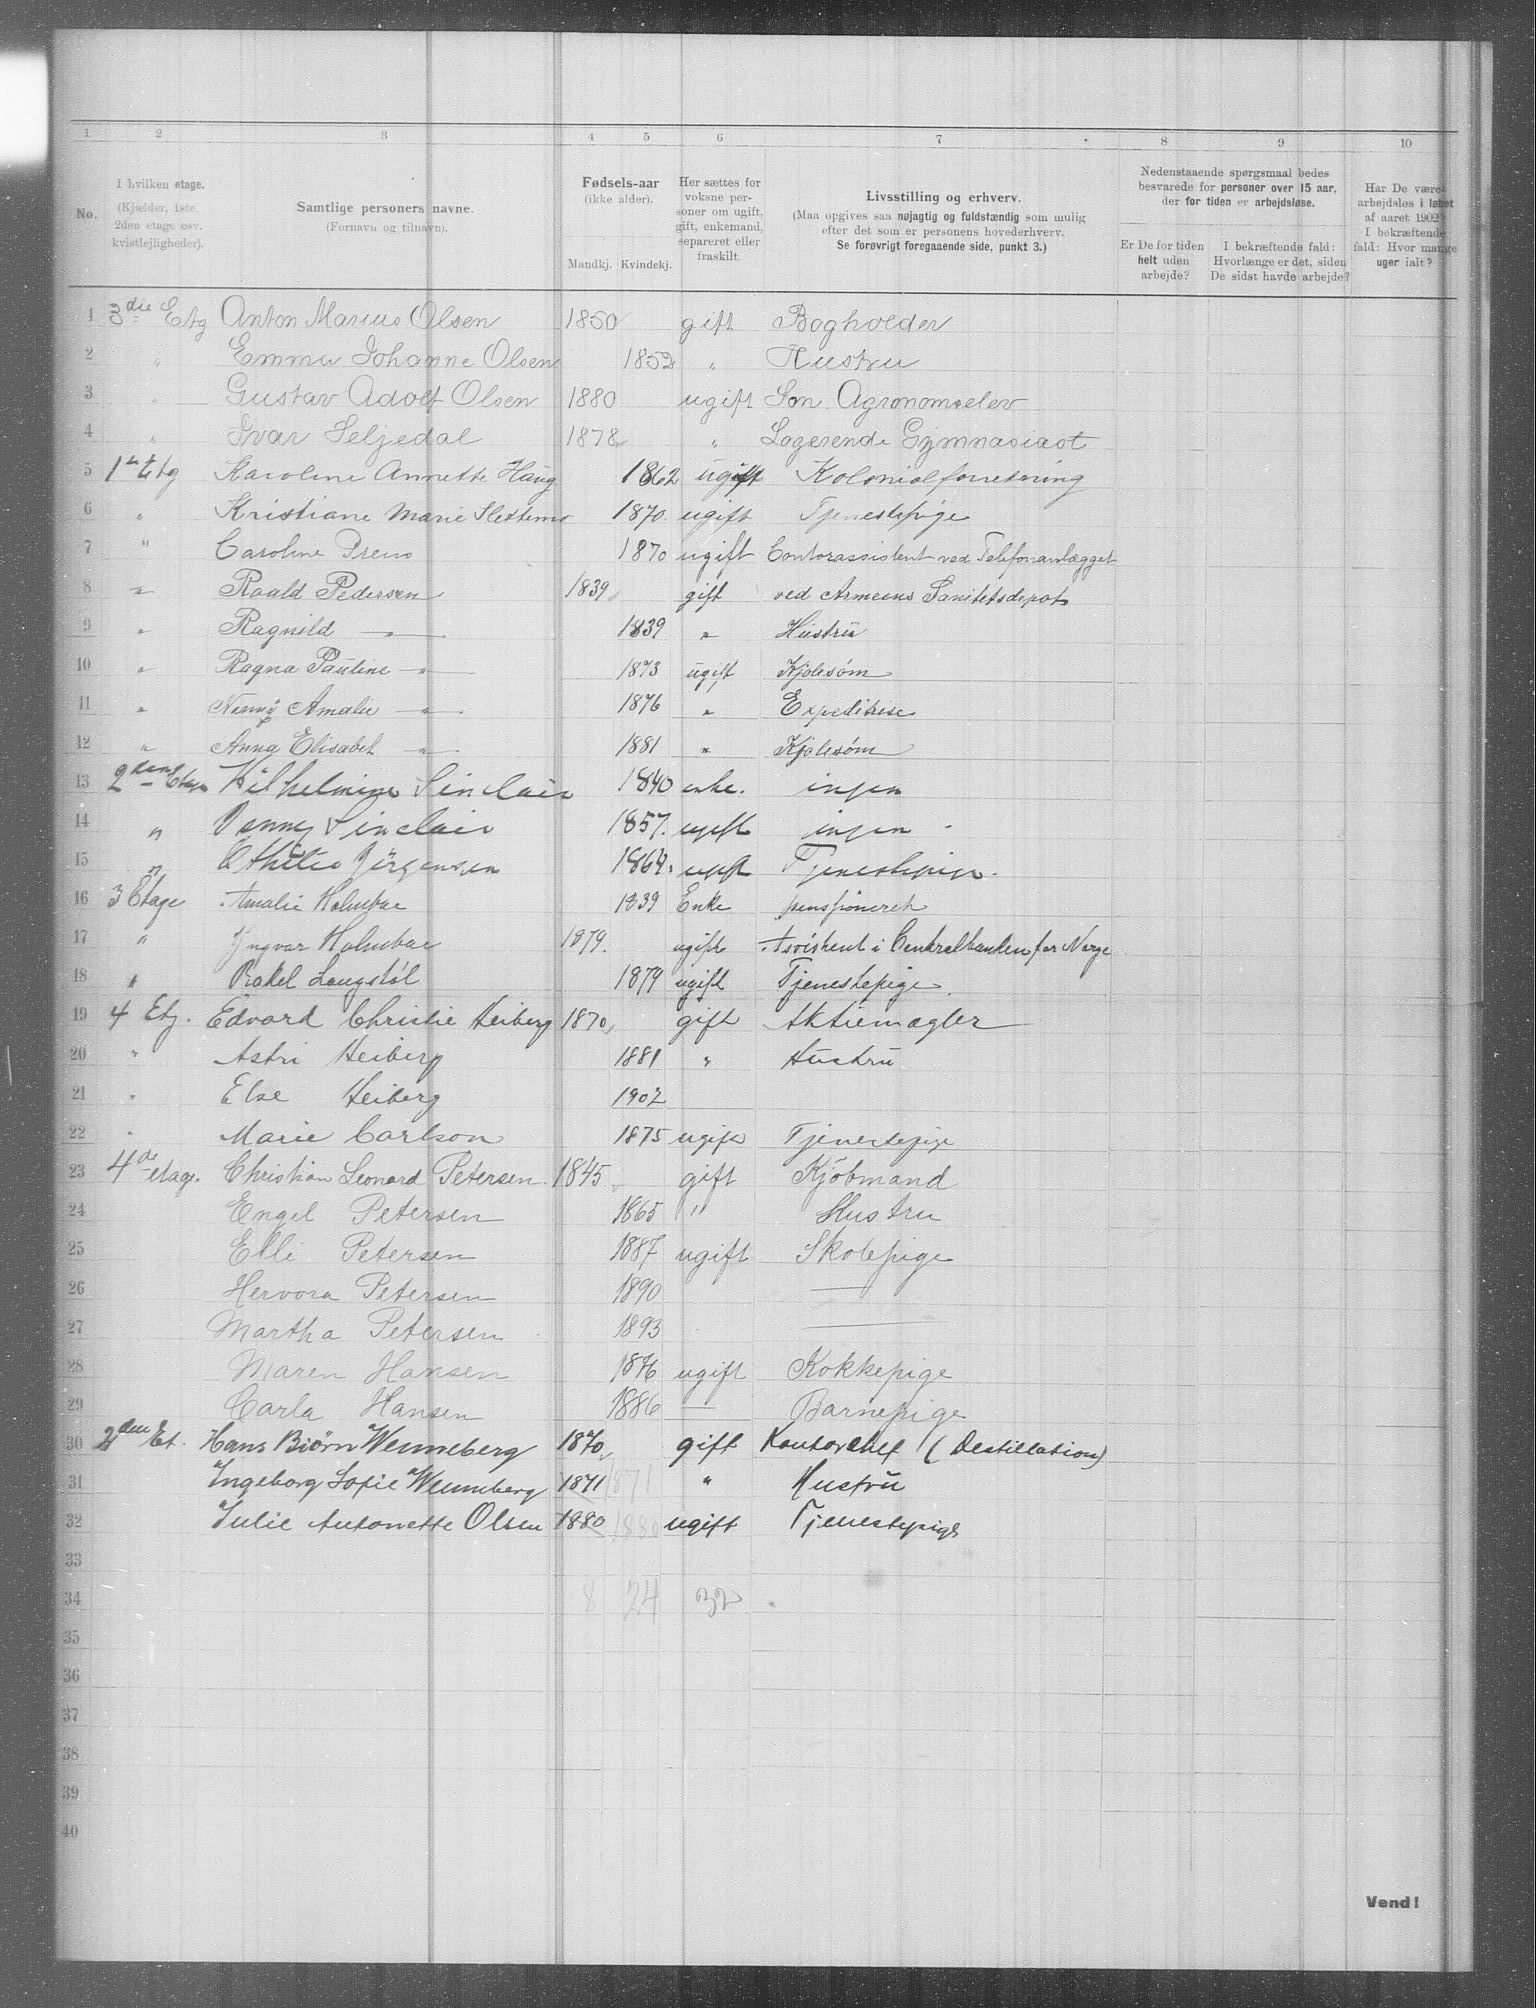 1 2 3 4 5 6 7 8 9 10
No.
I hvilken etage. (Kjælder, 1ste, 2den etage osv. kvistlejligheder).
Samtlige personers navne. (Fornavn og tilnavn).
Fødsels-aar (ikke alder). Mandkj. Kvindekj.
Her sættes for voksne personer om ugift, gift, enkemand, separeret eller fraskilt.
Livsstilling og erhverv. (Maa opgives saa nøjagtig og fuldstændig som mulig efter det som er personens hovederhverv. Se forøvrigt foregaaende side, punkt 3.)
Nedenstaaende spørgsmaal bedes besvarede for personer over 15 aar, der for tiden er arbejdsløse.
Er De for tiden helt uden arbejde?
I bekræftende fald: Hvorlænge er det, siden De sidst havde arbejde?
Har De været arbejdsløs i løbet af aaret 1902? I bekræftende fald: Hvor mange uger ialt?
1 3die Etg Anton Marius Olsen 1850 gift Bogholder
2 " Emma Johanne Olsen 1852 " Hustru
3 " Gustav Adolf Olsen 1880 ugift Søn. Agronomelev
4 " Ivar Seljedal 1878 " Logerende Gymnasiast
5 1ste Etg Karoline Annette Haug 1862 ugift Kolonialforretning
6 " Kristiane Marie 1870 ugift Tjenestepige
7 " Caroline 1870 ugift Contorassistent ved Telefonanlægget
8 " Roald Pedersen 1839 gift ved Armeens Sanitetsdepot
9 " Ragnild " 1839 " Hustru
10 " Ragna Pauline " 1873 ugift Kjolesøm
11 " Nanny Amalie " 1876 " Expeditrise
12 " Anna Elisabet " 1881 " Kjolesøm
13 2den Etage Wilhelmine Sinclair 1840 enke. ingen
14 " Sinclair 1857. ugift ingen
15 " Othilie Jörgensen 1864. ugift Tjenestepige.
16 3 Etage Amalie Holmboe 1839 Enke pensjoneret
17 " Yngvar Holmboe 1879. ugift Assistent i Centralbanken for Norge
18 " Rakel Langstøl 1879 ugift Tjenestepige
19 4 Etg. Edvard Christie Heiberg 1870 gift Aktiemægler
20 " Astri Heiberg 1881 " Hustru
21 " Else Heiberg 1902
22 " Marie Carlson 1875 ugift Tjenestepige
23 4de etage. Christian Leonard Petersen 1845 gift Kjöbmand
24 Engel Petersen 1865 " Hustru
25 Elli Petersen 1887 ugift Skolepige
26 Hervora Petersen 1890 —
27 Martha Petersen 1893 —
28 Maren Hansen 1876 ugift Kokkepige
29 Carla Hansen 1886 — Barnepige
30 2den Et. Hans Biørn Wenneberg 1870 gift Kontorchef (Destillation)
31 Ingeborg Sofie Wenneberg 1871 1871 " Hustru
32 Julie Antonette Olsen 1880 1880 ugift Tjenestepige
33
34 8 24 32
35
36
37
38
39
40
Vend!